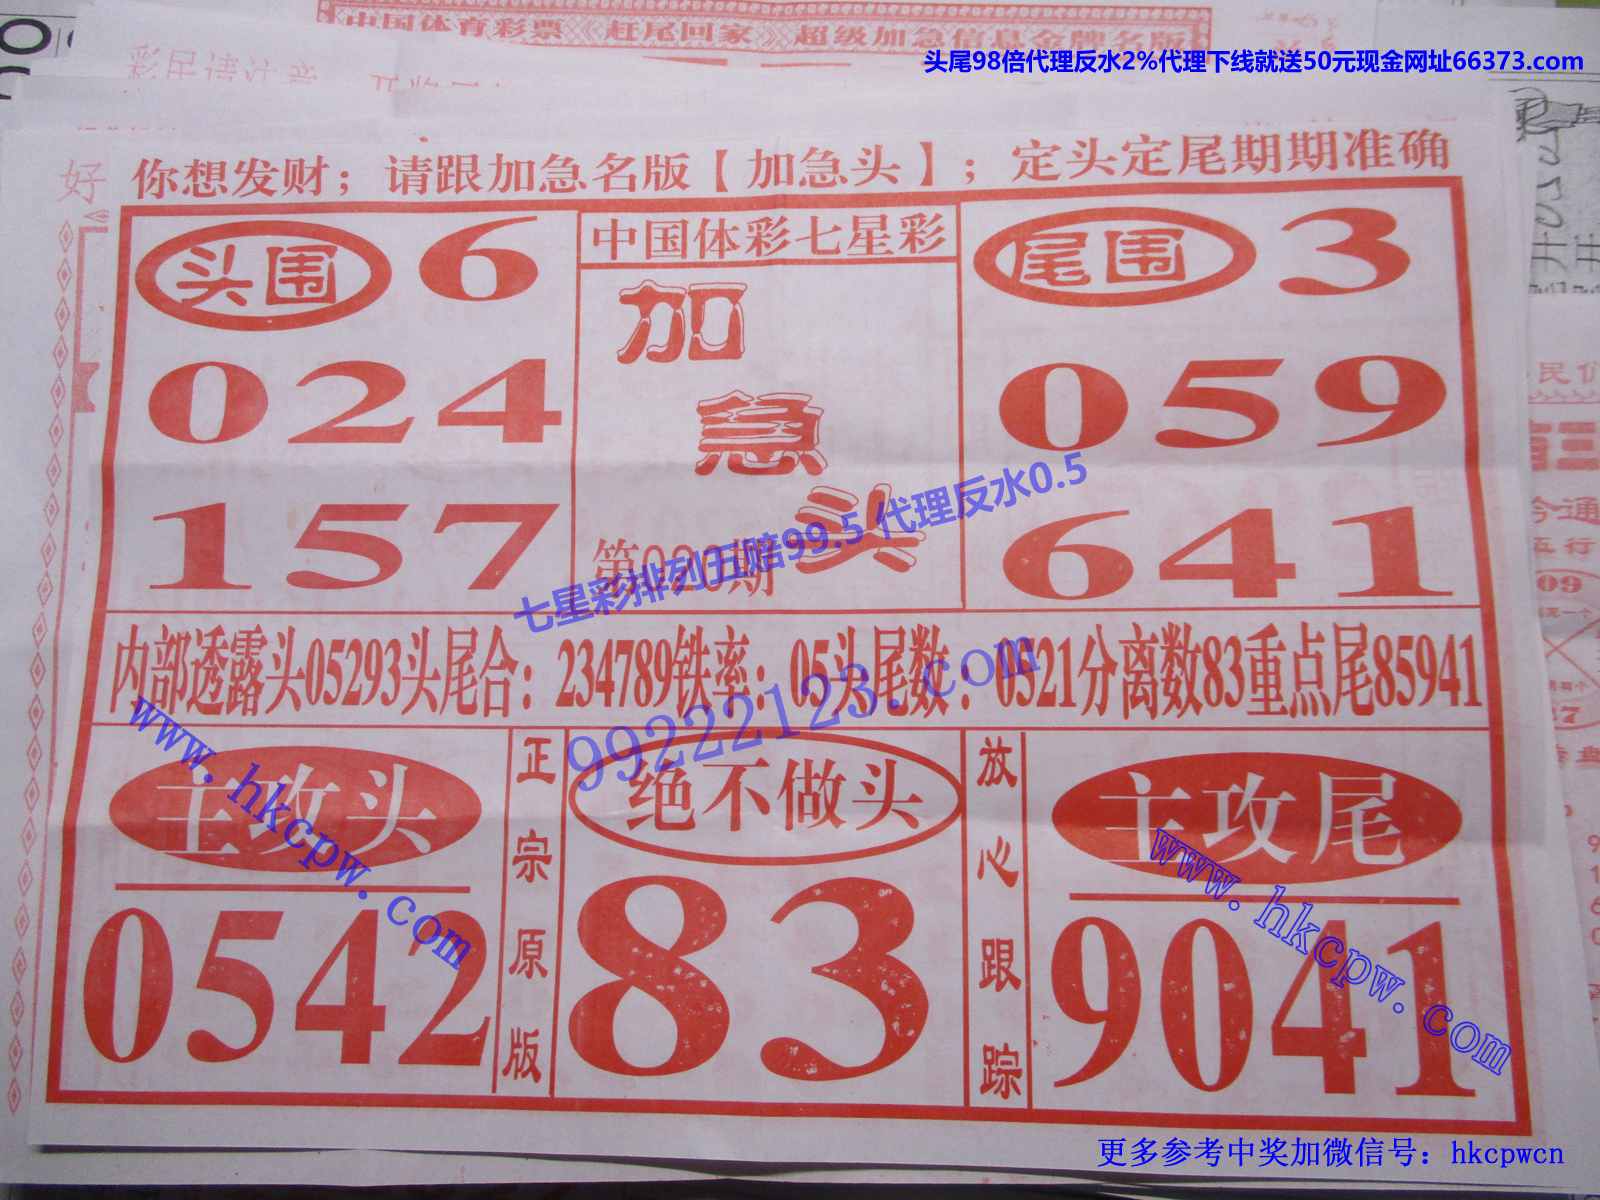 中国体育彩票《赶尾回家》超级加急信息金牌名版
头尾98倍代理反水2%代理下线就送50元现金网址66373.com
彩民请注意
好
你想发财；请跟加急名版【加急头】；定头定尾期期准确
头围 6
024
157
中国体彩七星彩
加
急
头
尾围 3
059
641
七星彩排列五赔99.5 代理反水0.5
内部透露头05293头尾合：234789铁率：05头尾数：0521分离数83重点尾85941
99222123.com
主攻头
0542
www.hkcpw.com
正宗原版
绝不做头
83
放心跟踪
主攻尾
9041
www.hkcpw.com
更多参考中奖加微信号：hkcpwcn